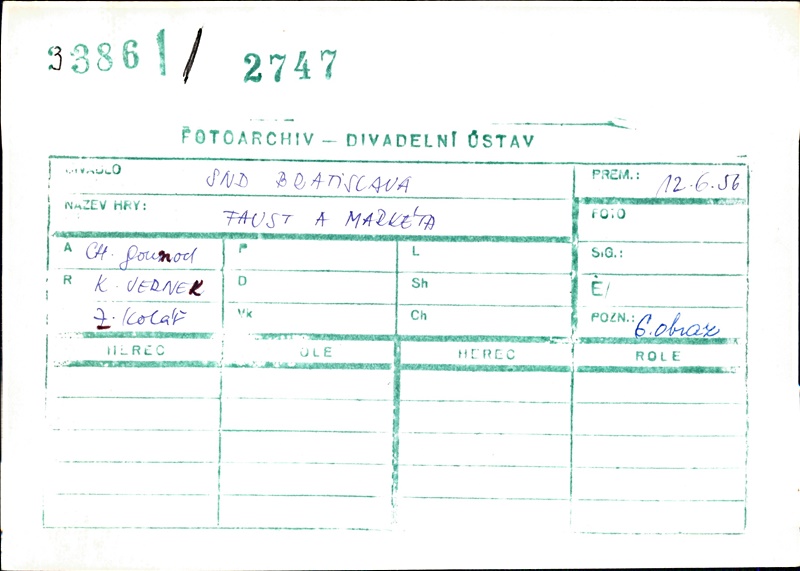 33861/ 2747
FOTOARCHIV — DIVADELNÍ ÚSTAV
DIVADLO SND BRATISLAVA
PREM.: 12.6.56
NÁZEV HRY: FAUST A MARKÉTA
FOTO
A CH. Gounod P L
SIG.:
R K. VERNEK D Sh
Č/
Z. Kolář Vk Ch
POZN.: 6. obraz
HEREC ROLE HEREC ROLE